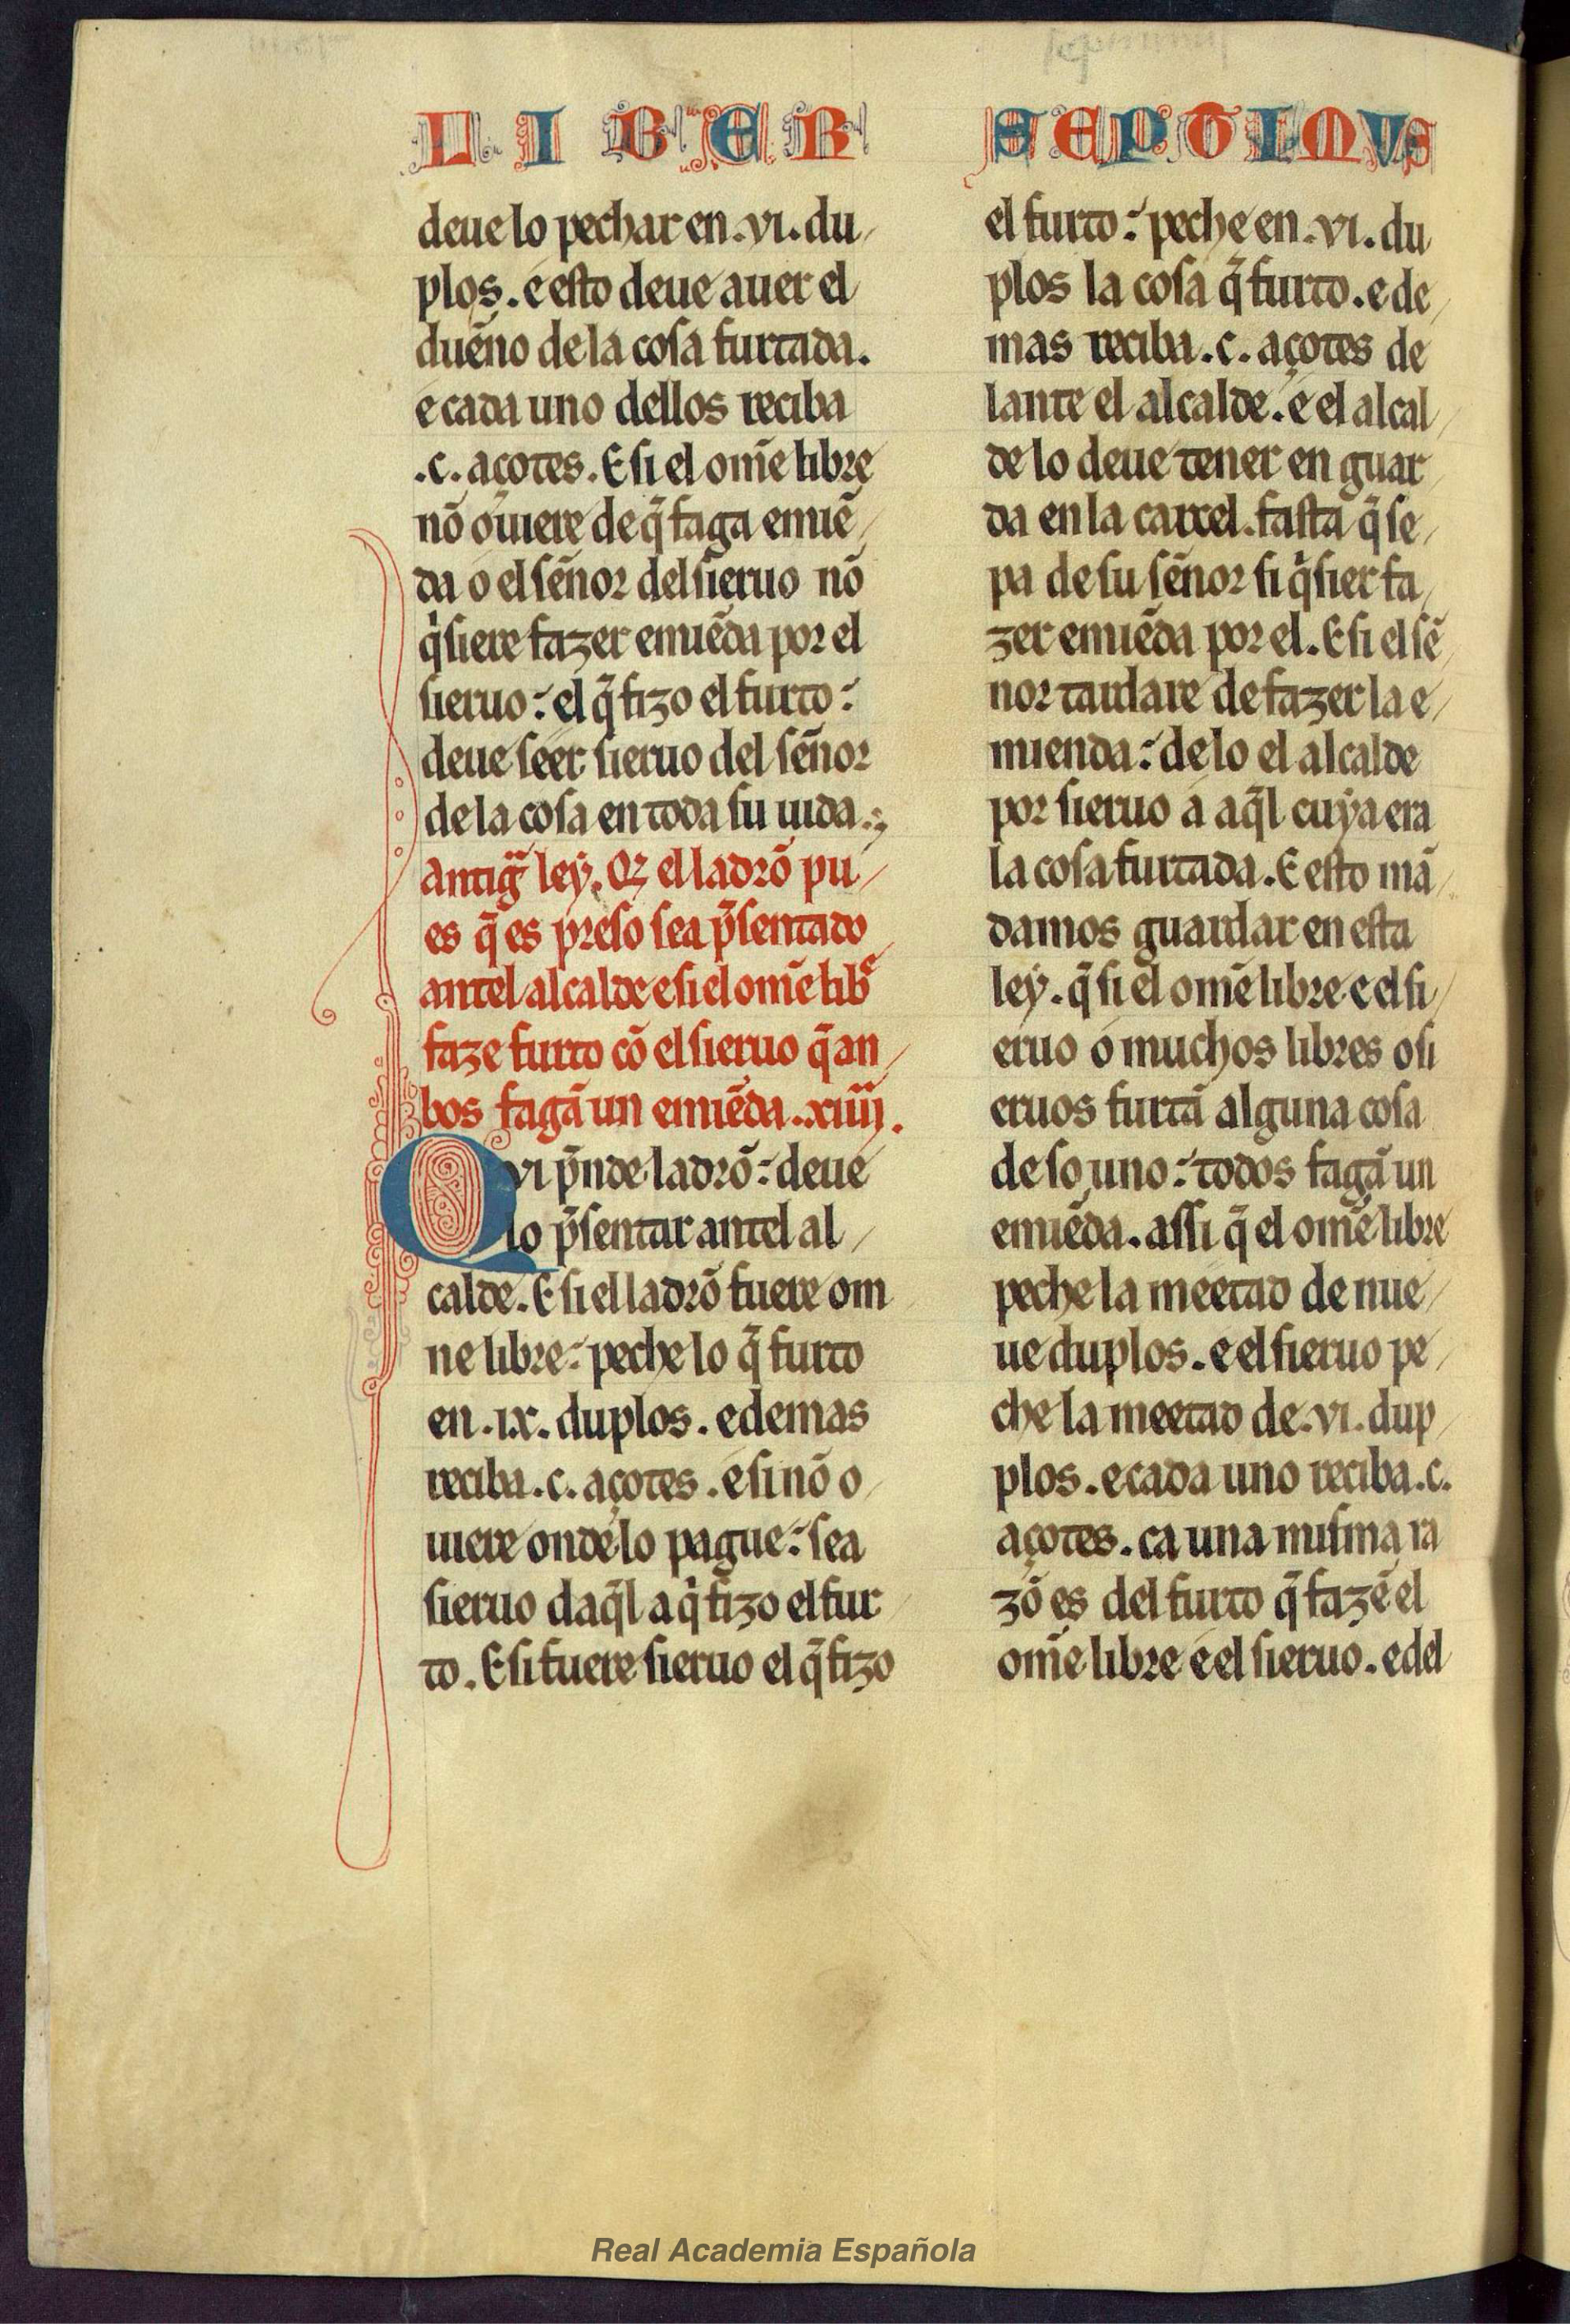 LIBER SEPTIMVS
deue lo pechar en .vi. du
plos. e esto deue auer el
dueño de la cosa furtada.
e cada uno dellos reciba
.c. açotes. E si el om̃e libre
nõ ouiere de q̃ faga emiẽ
da o el señor del sieruo nõ
q'siere fazer emiẽda por el
sieruo: el q̃ fizo el furto:
deue seer sieruo del señor
de la cosa en toda su uida.
antigª ley. Qz el ladrõ pu
es q̃ es preso sea p̃sentado
antel alcalde e si el om̃e libᵉ
faze furto cõ el sieruo q̃ an
bos fagã un emiẽda. .xiiij.
Qvi p̃nde ladrõ: deue
lo p̃sentar antel al
calde. E si el ladrõ fuere om
ne libre: peche lo q̃ furto
en .ix. duplos. e demas
reciba .c. açotes. e si nõ o
uiere onde lo pague: sea
sieruo daq̃l a q' fizo el fur
to. E si fuere sieruo el q̃ fizo
el furto: peche en .vi. du
plos la cosa q̃ furto. e de
mas reciba .c. açotes de
lante el alcalde. e el alcal
de lo deue tener en guar
da en la carcel. fasta q̃ se
pa de su señor si q'sier fa
zer emiẽda por el. E si el sẽ
nor tardare de fazer la e
mienda: de lo el alcalde
por sieruo a aq̃l cuya era
la cosa furtada. E esto mã
damos guardar en esta
ley. q̃ si el om̃e libre e el si
eruo o muchos libres o si
eruos furtã alguna cosa
de so uno: todos fagã un
emiẽda. assi q̃ el om̃e libre
peche la meetad de nue
ue duplos. e el sieruo pe
che la meetad de .vi. dup
plos. e cada uno reciba .c.
açotes. ca una misma ra
zõ es del furto q̃ fazẽ el
om̃e libre e el sieruo. e del
Real Academia Española